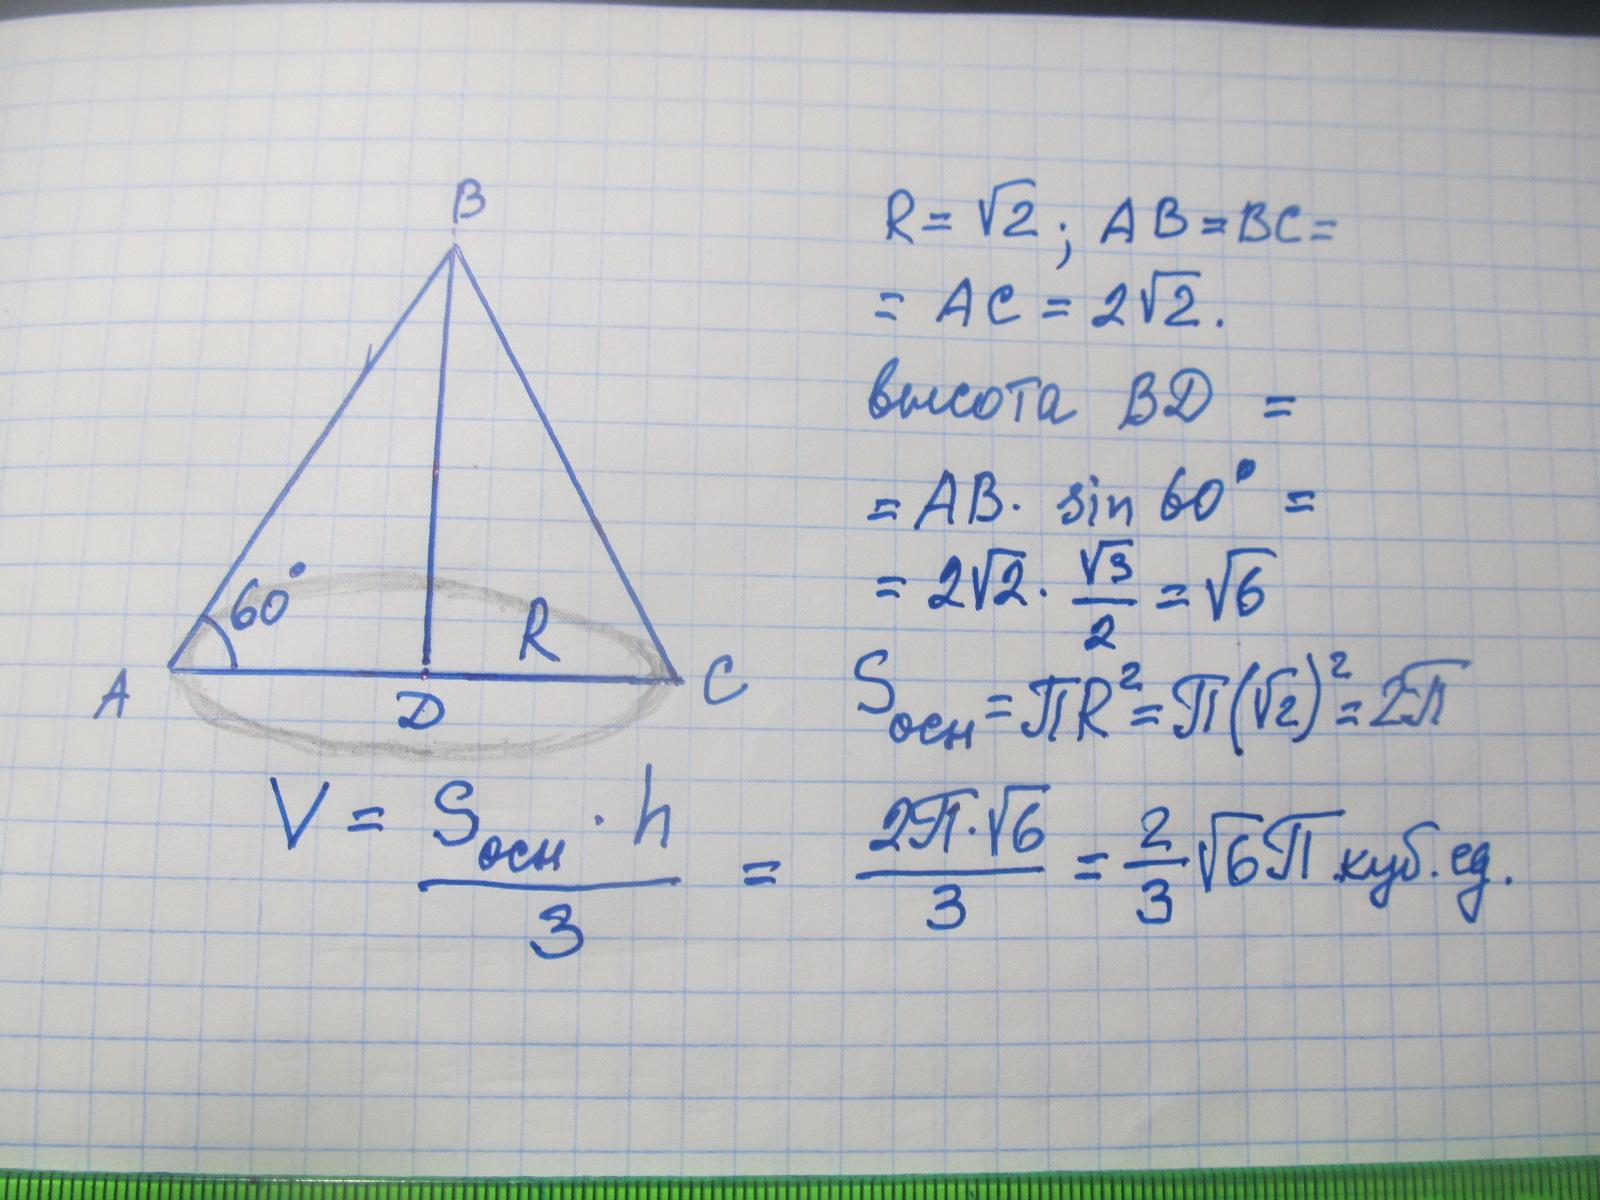 B
60°
R
A
D
C
R = √2; AB = BC =
= AC = 2√2.
высота BD =
= AB · sin 60° =
= 2√2 · √3/2 = √6
Sосн = πR² = π(√2)² = 2π
V = Sосн · h / 3 = 2π·√6 / 3 = 2/3 √6π куб. ед.